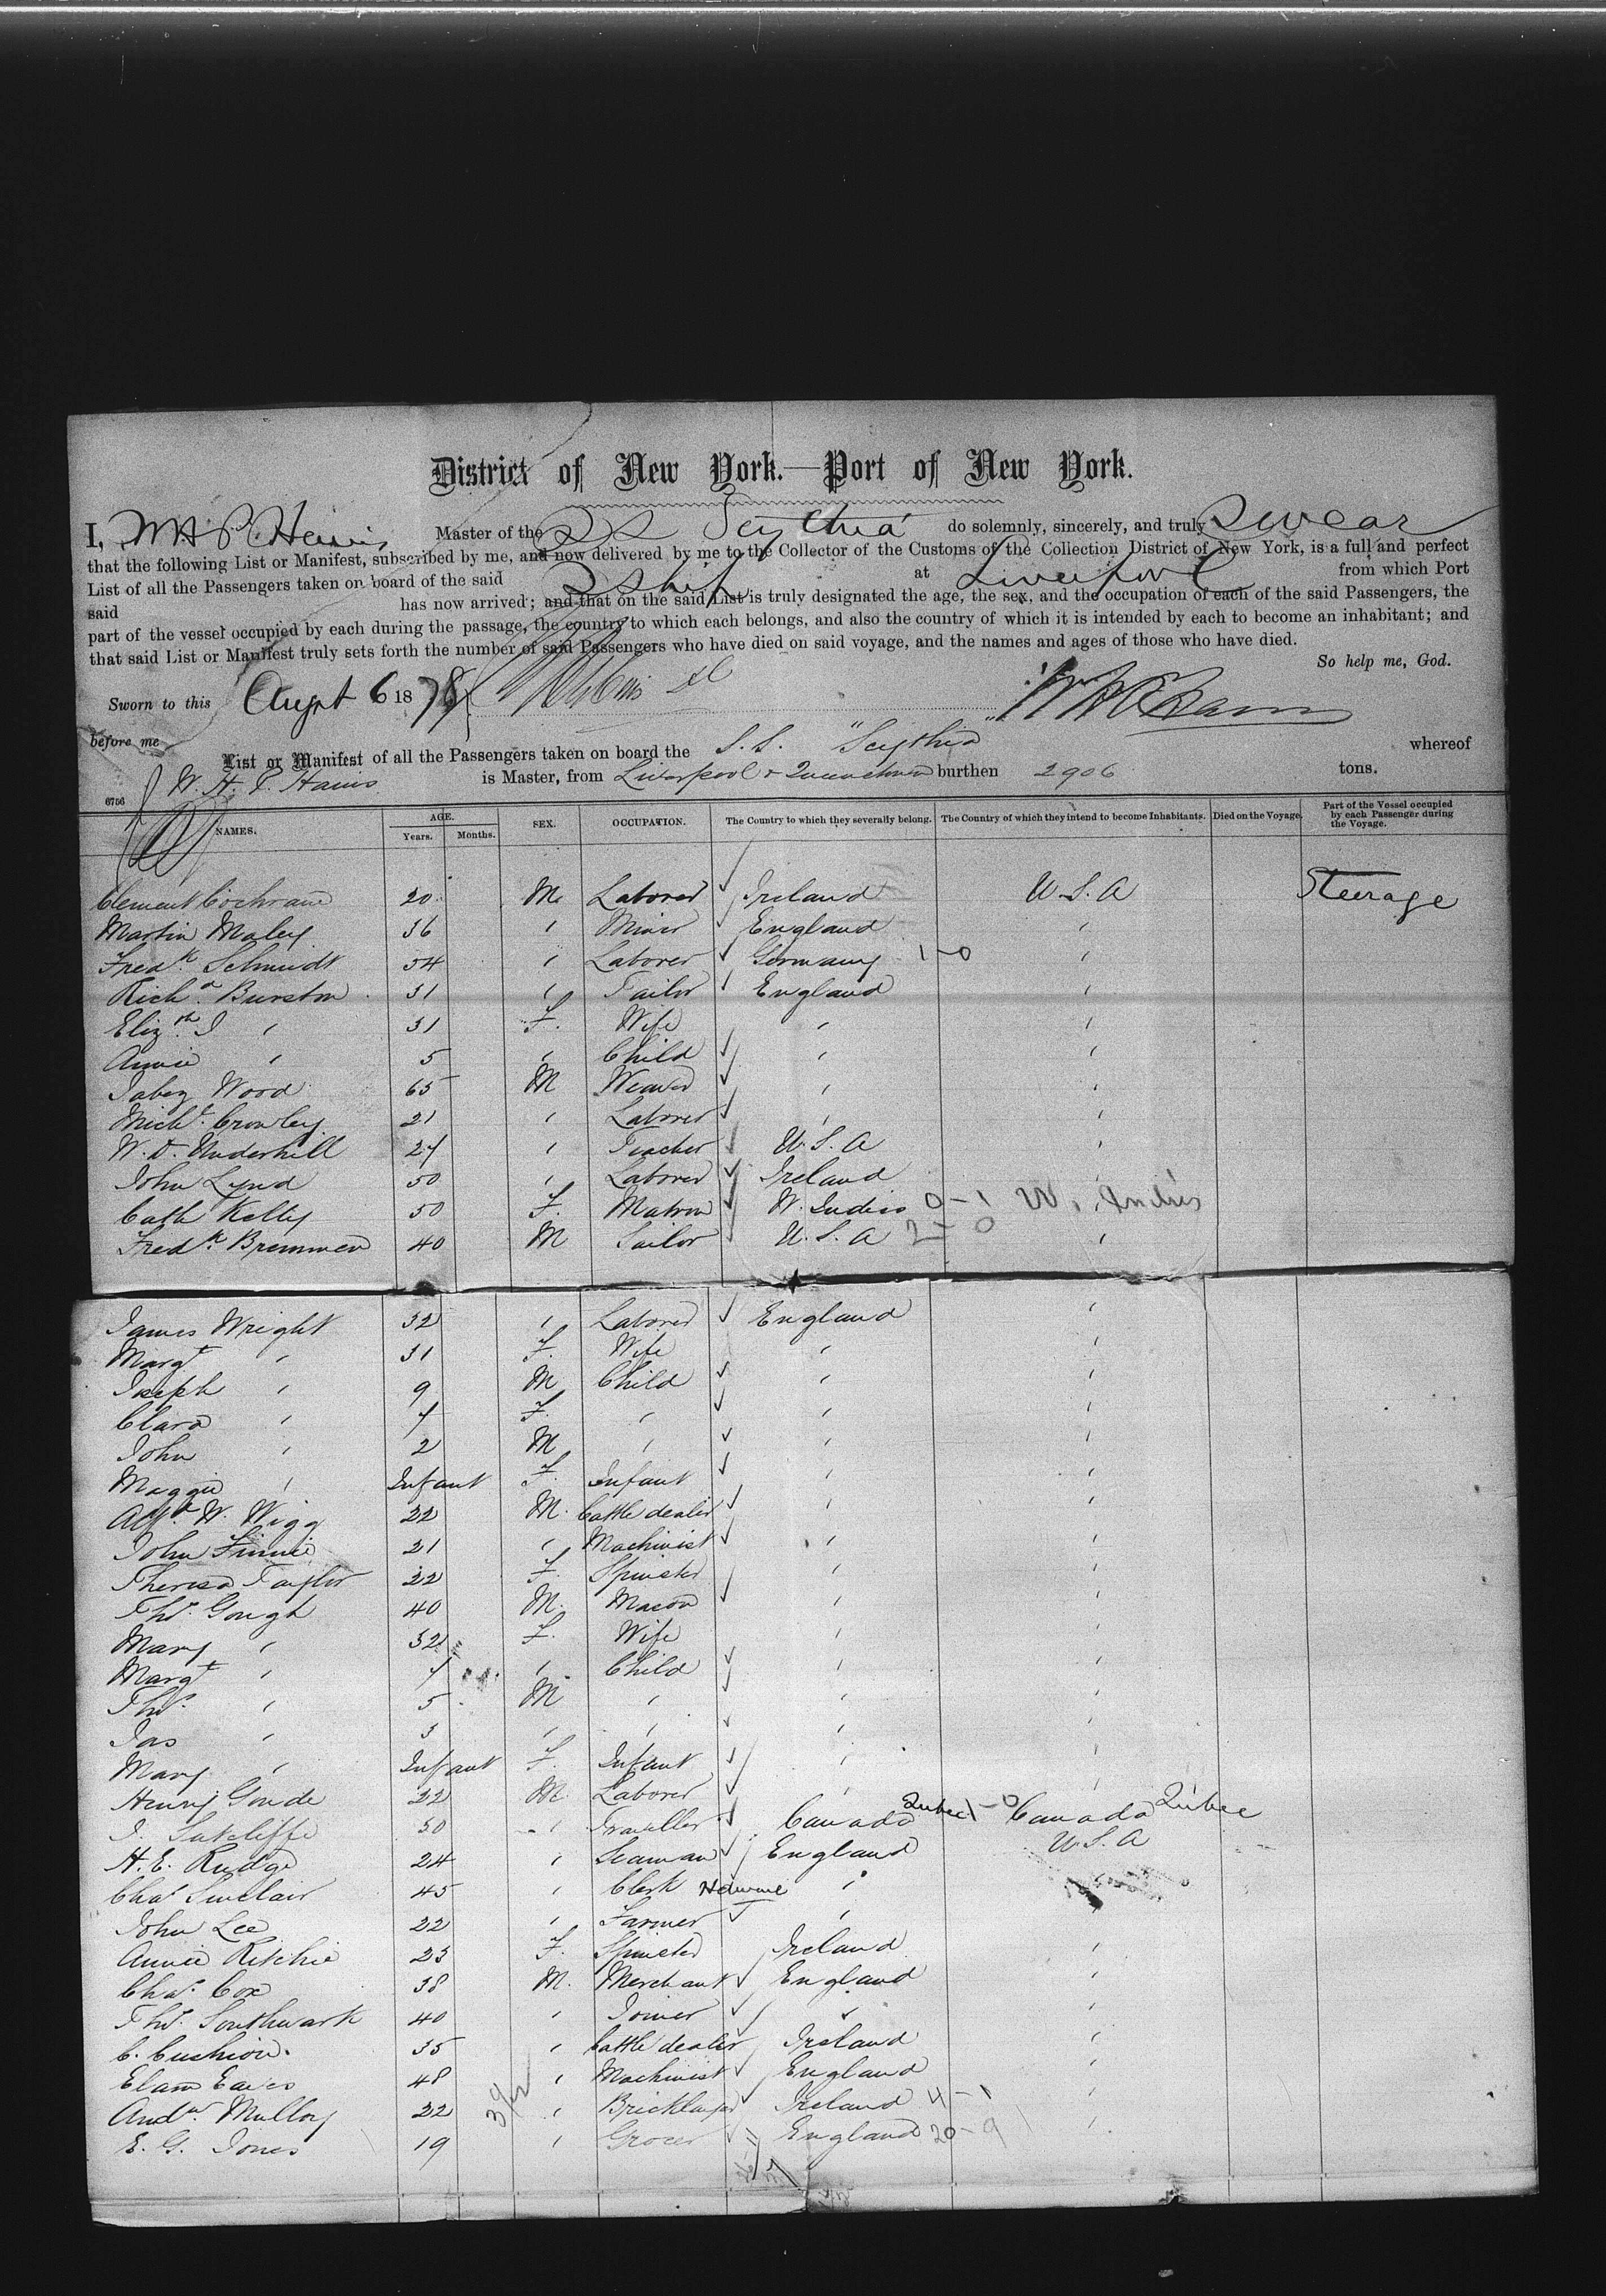 District of New York.—Port of New York.
I, W. H. P. Hains Master of the SS Scythia do solemnly, sincerely, and truly Swear
that the following List or Manifest, subscribed by me, and now delivered by me to the Collector of the Customs of the Collection District of New York, is a full and perfect
List of all the Passengers taken on board of the said S Ship at Liverpool from which Port
said has now arrived; and that on the said List is truly designated the age, the sex, and the occupation of each of the said Passengers, the
part of the vessel occupied by each during the passage, the country to which each belongs, and also the country of which it is intended by each to become an inhabitant; and
that said List or Manifest truly sets forth the number of said Passengers who have died on said voyage, and the names and ages of those who have died.
So help me, God.
Sworn to this Augst 6 1878
before me
List or Manifest of all the Passengers taken on board the S. S. "Scythia" whereof
W. H. P. Hains is Master, from Liverpool & Queenstown burthen 2906 tons.
6756
NAMES. AGE. Years. Months. SEX. OCCUPATION. The Country to which they severally belong. The Country of which they intend to become Inhabitants. Died on the Voyage. Part of the Vessel occupied by each Passenger during the Voyage.
Clement Cochrane 20 M. Laborer Ireland U.S.A Steerage
Martin Maley 36 " Miner England "
Fredk. Schmidt 54 " Laborer Germany 1-0 "
Richd. Burston 31 " Tailor England "
Elizth. J " 31 F. Wife " "
Annie " 5 " Child " "
Jabez Wood 65 M Weaver " "
Michl. Crowley 21 " Laborer " "
W. D. Underhill 27 " Teacher U.S.A "
John Lynd 50 " Laborer Ireland "
Cath Kelly 50 F. Matron W. Indies 0-1 W. Indies
Fredk. Bremmer 40 M Sailor U.S.A 2-0 "
James Wright 32 " Laborer England "
Margt " 31 F. Wife " "
Joseph " 9 M Child " "
Clara " 7 F. " " "
John " 2 M " " "
Maggie " Infant F. Infant " "
Alfd. W. Wigg 22 M. Cattle dealer " "
John Finnie 21 " Machinist " "
Theresa Taylor 22 F. Spinster " "
Thos. Gough 40 M. Mason " "
Mary " 32 F. Wife " "
Margt " 7 " Child " "
Thos. " 5 M " " "
Jas " 3 " " " "
Mary " Infant F. Infant " "
Henry Goude 22 M Laborer " "
J. Sutcliffe 30 " Traveller Canada Quebec 1-0 Canada Quebec
H. E. Rudge 24 " Seaman England U.S.A
Chas. Sinclair 45 " Clerk "
John Lee 22 " Farmer "
Annie Ritchie 23 F. Spinster Ireland "
Chas. Cox 38 M. Merchant England "
Thos. Southwark 40 " Joiner " "
C. Cushion. 35 " Cattle dealer Ireland "
Elam Eaves 48 " Machinist England "
Andw. Mulloy 22 " Bricklayer Ireland 4-1 "
E. G. Jones 19 " Grocer England 20-9 "